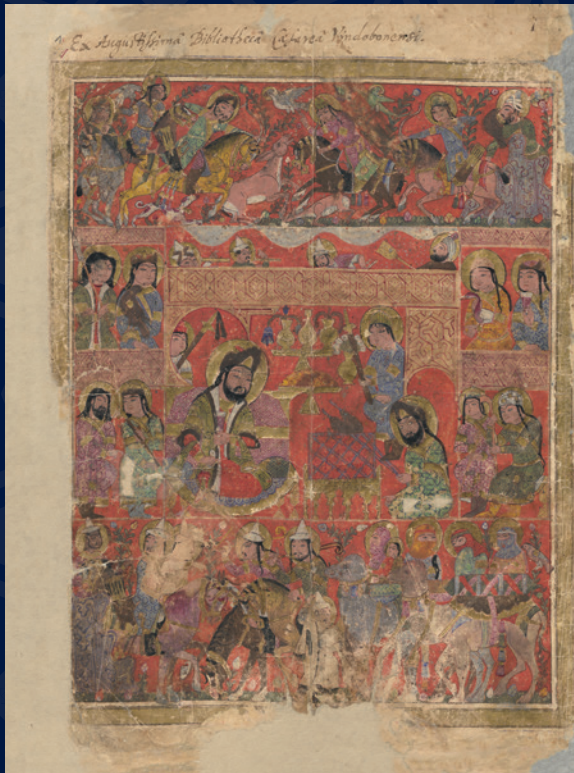 Ex Augustissimâ Bibliothecâ Cæsareâ Vindobonensi.